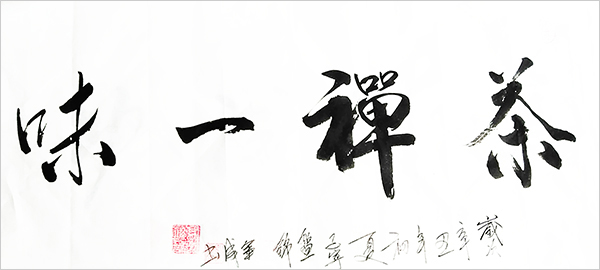 茶禪一味
歲辛丑年初夏